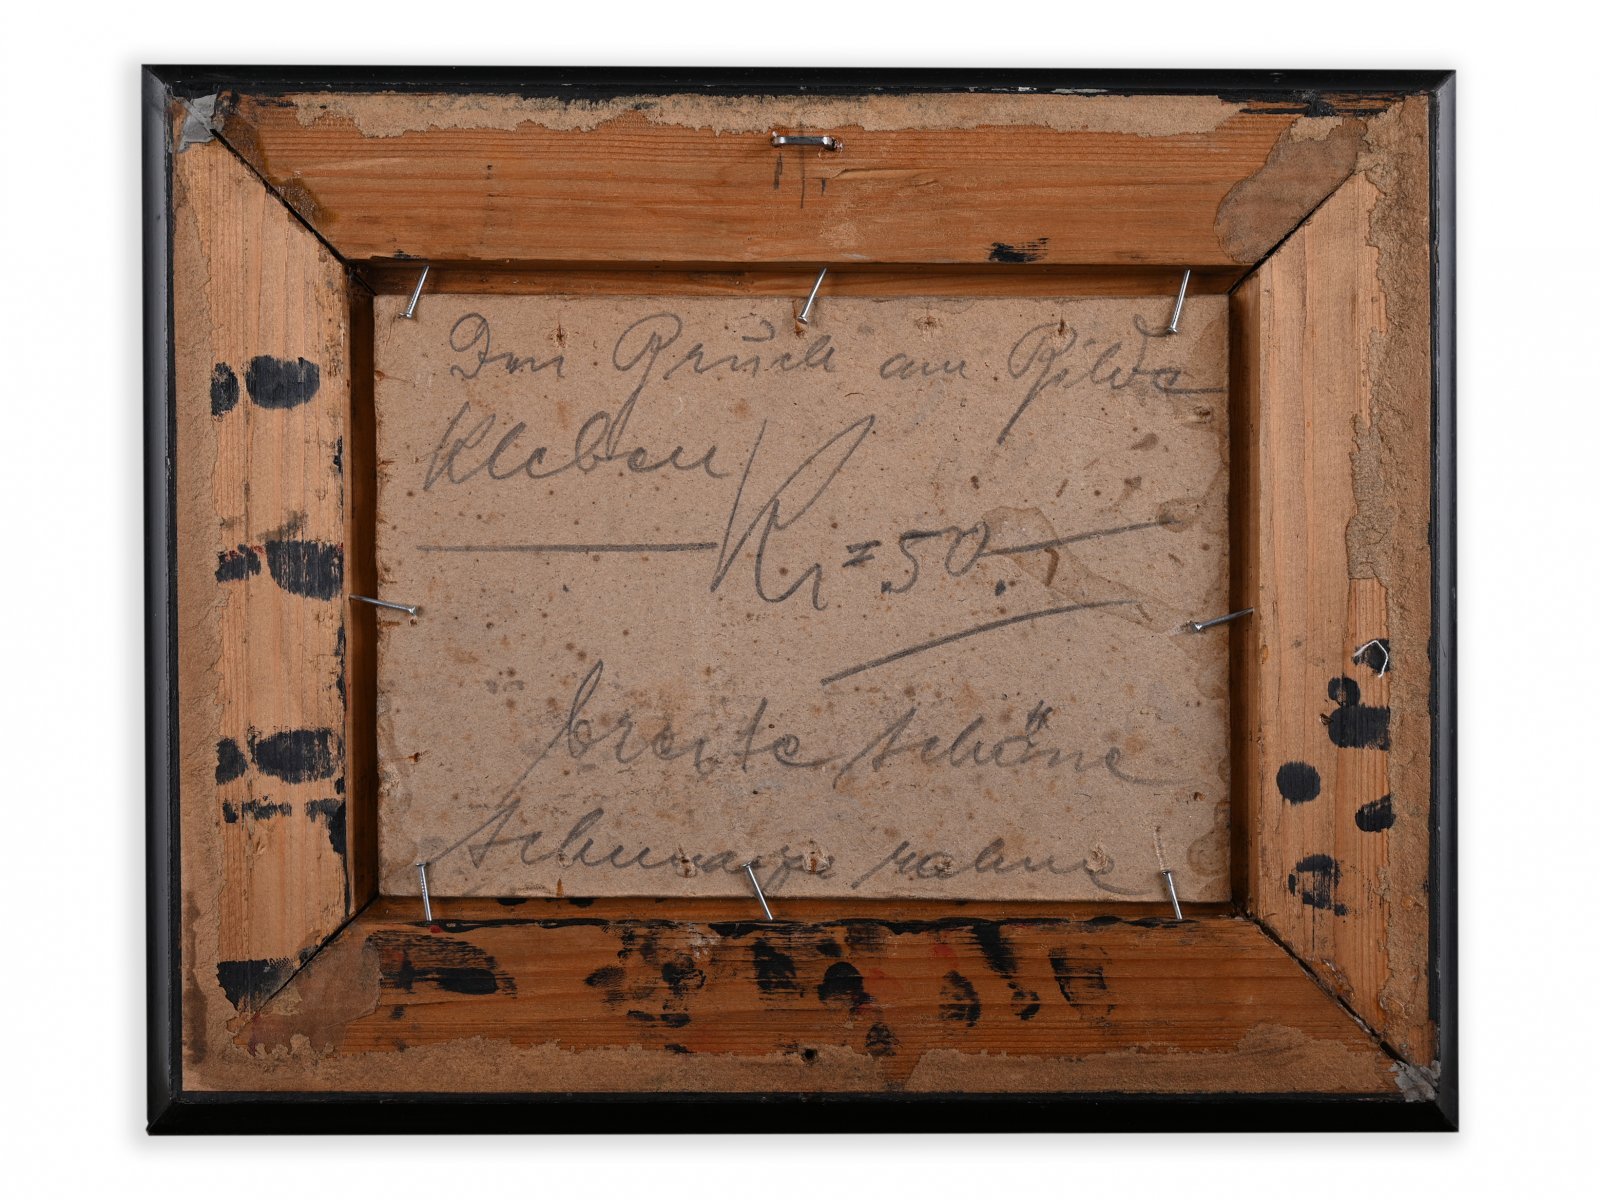 Den Bruch am Bilde
kleben
Kr = 50.-
breite schöne
schwarze rahme